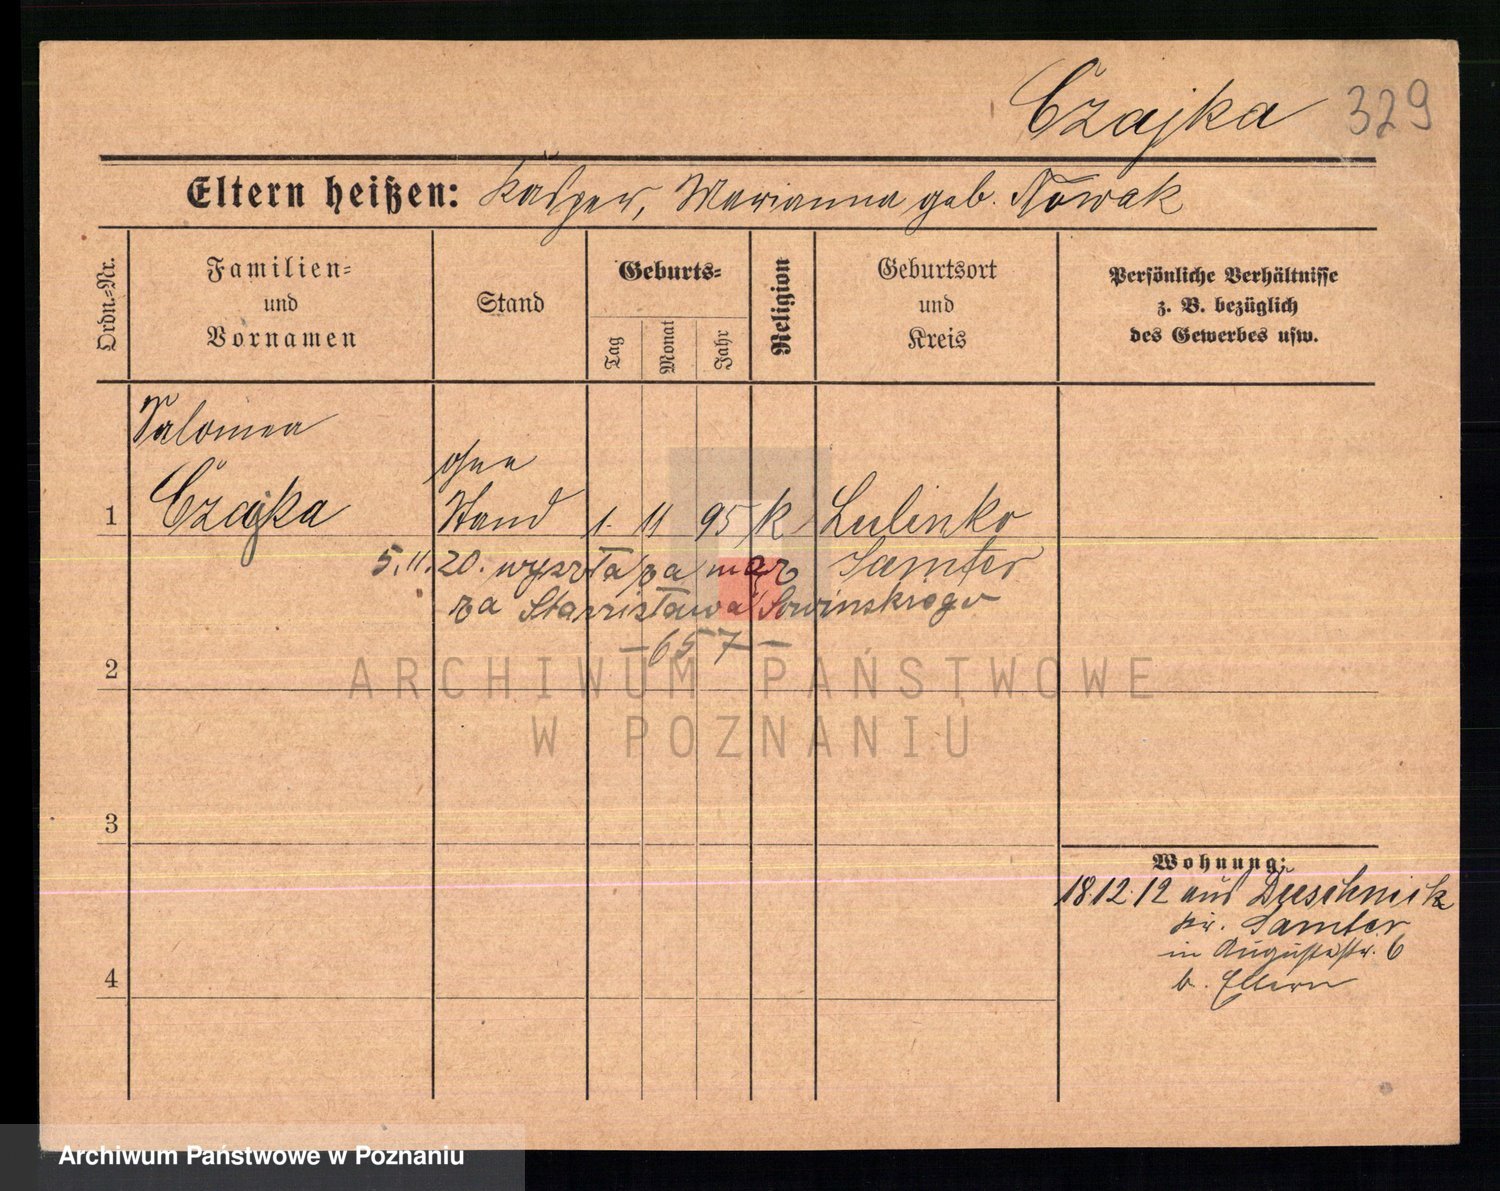 Czajka 329
Eltern heißen: Kasper, Marianna geb. Nowak
Ordn.=Nr.
Familien=
und
Vornamen
Stand
Geburts=
Tag
Monat
Jahr
Religion
Geburtsort
und
Kreis
Persönliche Verhältnisse
z. B. bezüglich
des Gewerbes usw.
Salomea
ohne
1 Czajka Stand 1. 11 95 k Lulinko
Samter
5.11.20. wyszła za mąż
za Stanisława Sowinskiego
– 657 –
2
3
4
Wohnung:
18.12.12 aus Duschnick
Kr. Samter
in Augustastr. 6
b. Eltern
ARCHIWUM PAŃSTWOWE
W POZNANIU
Archiwum Państwowe w Poznaniu